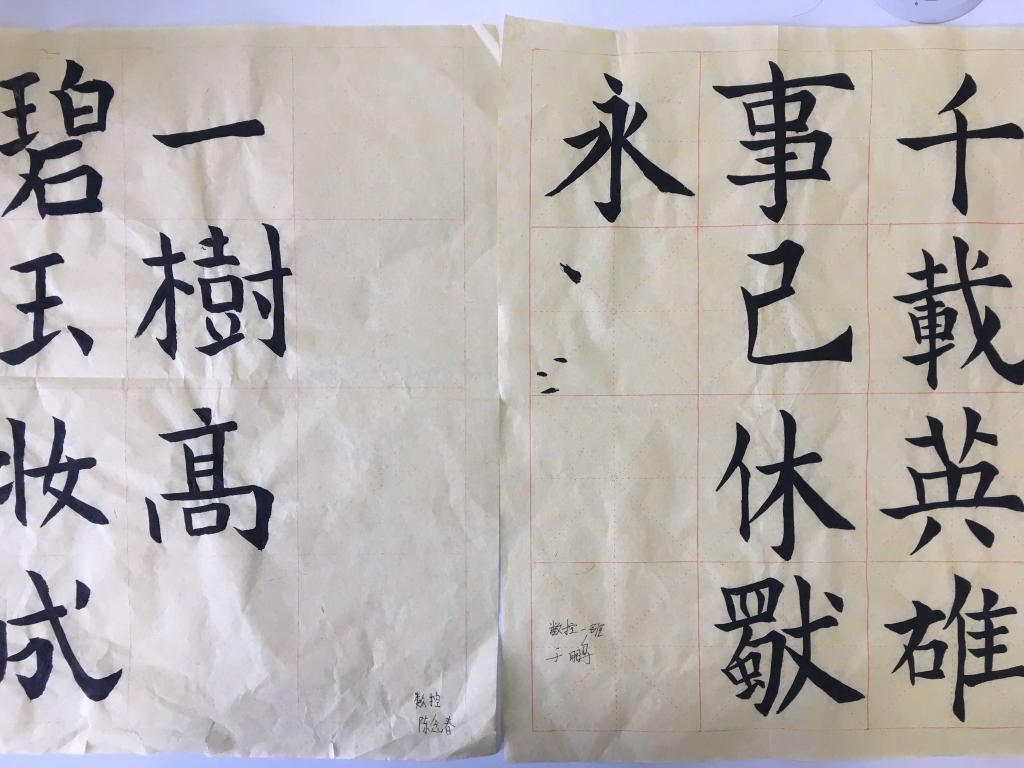 碧玉妆成
一樹高
数控
陈念春
千載英雄
事已休獨
永
数控一班
于鹏